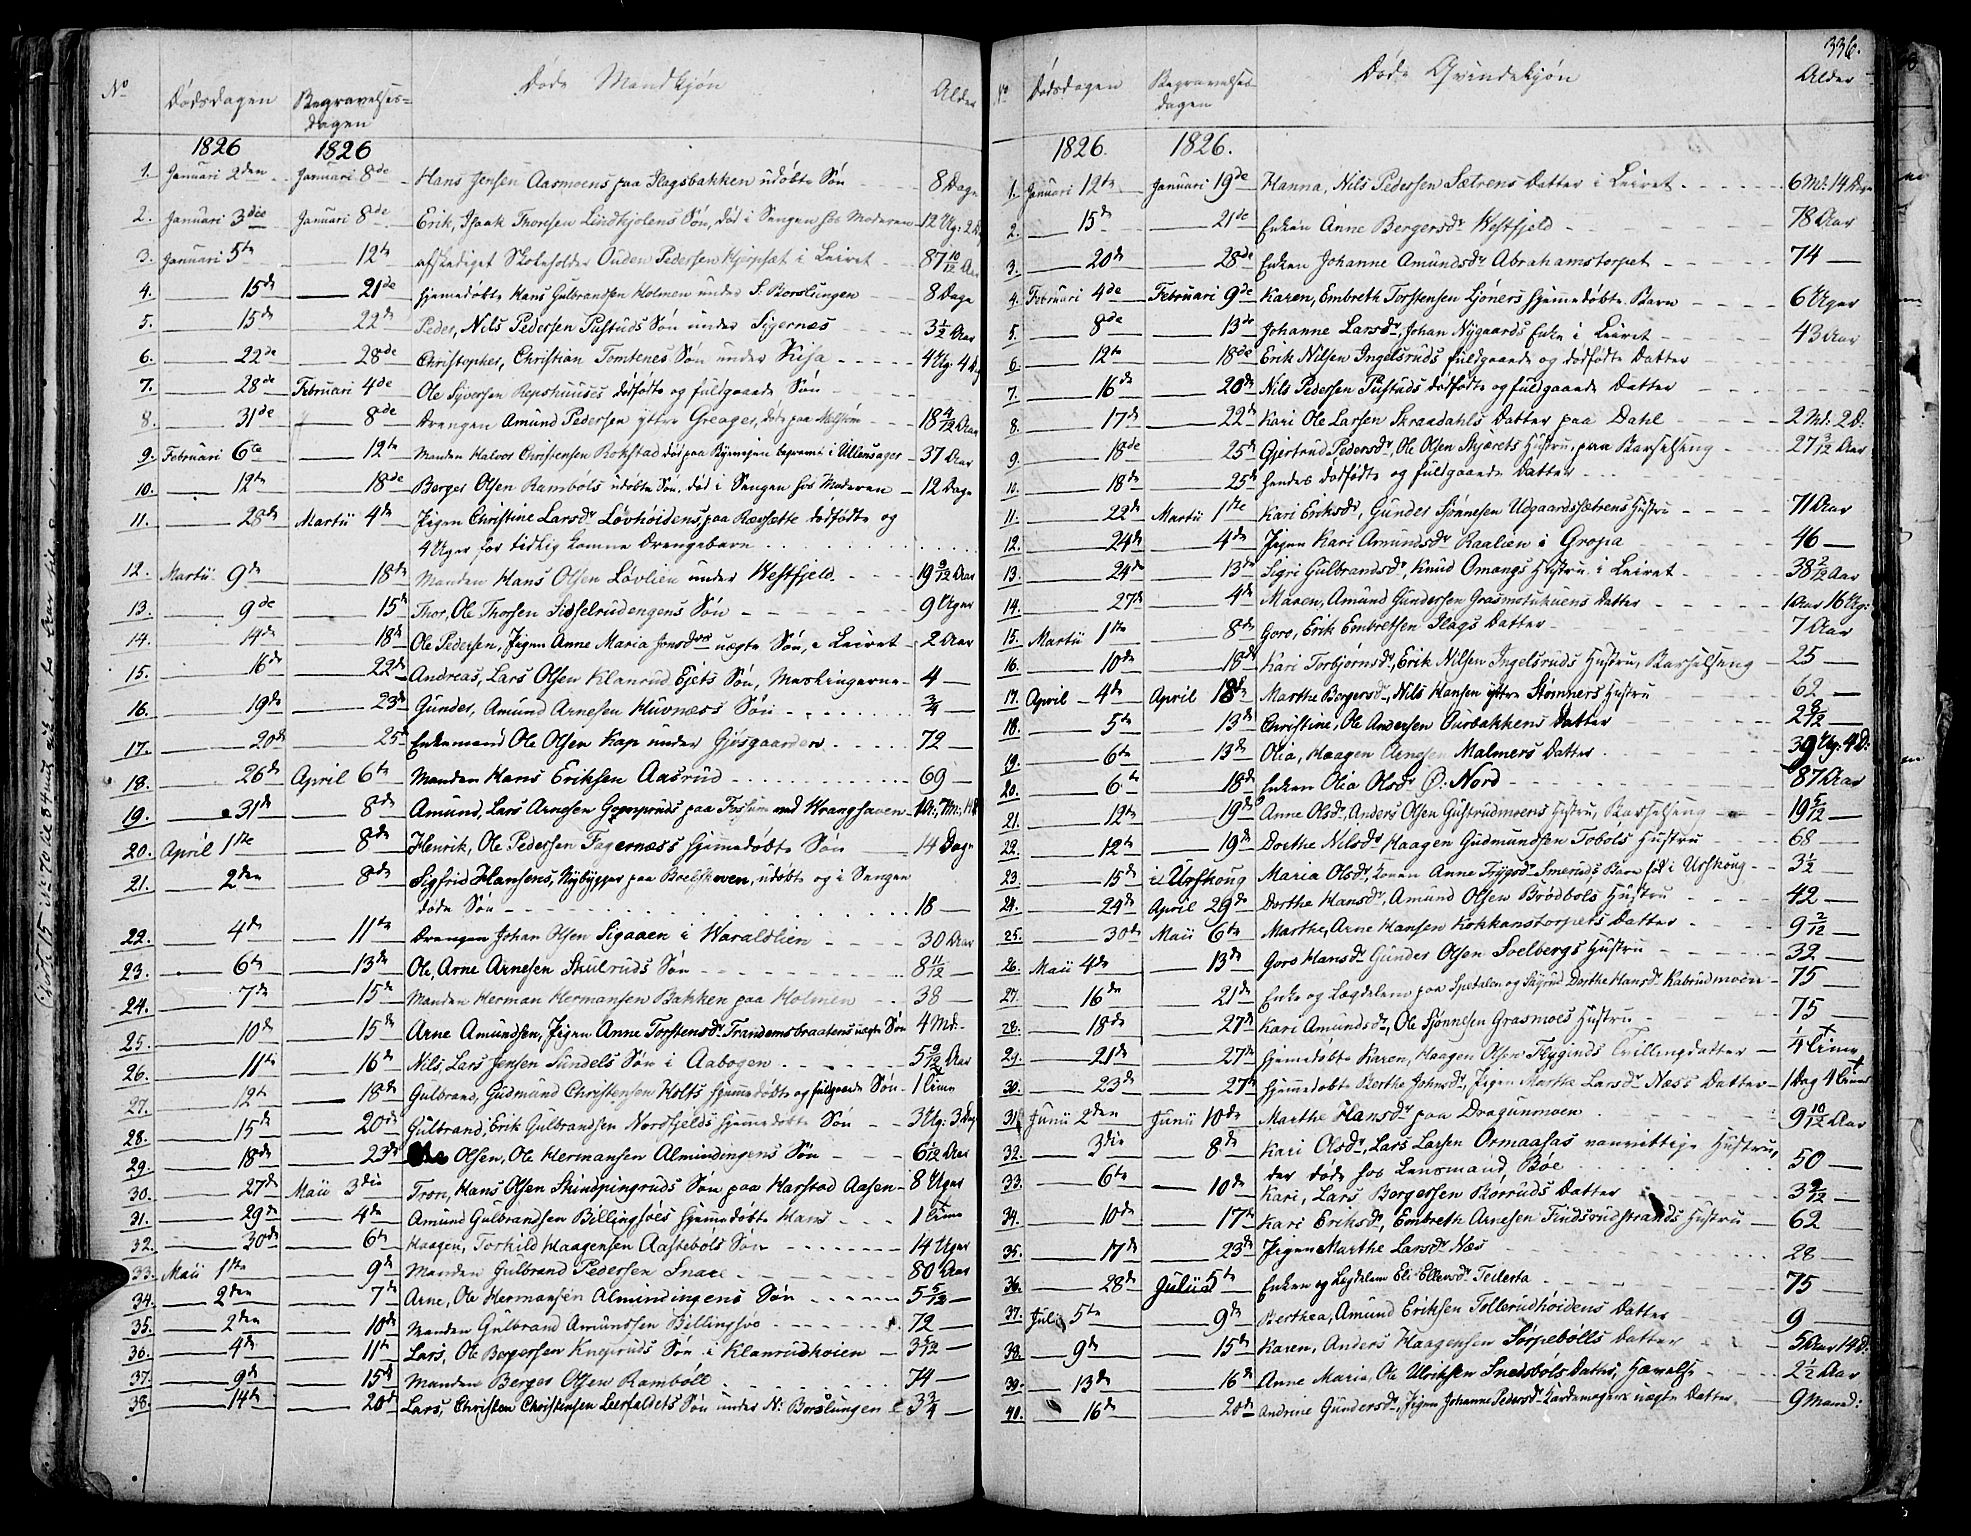 336.
No Dødsdagen Begravelses= dagen Døde Mandkjøn Alder
1826 1826
1. Januari 2den Januari 8de Hans Jensen Aasmoens paa Flagsbakken udøbte Søn 8 Dage
2. Januari 3die Januari 8de Erik, Isaak Thoresen Lindkjolens Søn, død i Sengen hos Moderen 12 Ug: 2 D
3. Januari 5te 12te afskediget Skoleholder Ouden Pedersen Hjerpsæt i Leiret 87 10/12 Aar
4. 15de 21de hjemedøbte Hans Gulbrandsen Holmen under S: Borslungen 8 Dage
5. 15de 22de Peder, Nils Pedersen Pustuds Søn under Sigernæs 3 1/2 Aar
6. 22de 28de Christopher, Christian Tomtenes Søn under Kisa 4 Ug: 4 D
7. 28de Februari 4de Ole Syversen Repshuuses dødfødte og fuldgaaede Søn
8. 31de 8de Drengen Amund Pedersen yttre Greager, døde paa 18 4/12 Aar
9. Februari 6te 12te Manden Halvor Christensen Rokstad død paa Reisen begravet i Ullensager 37 Aar
10. 12te 18de Berger Olsen Rambøls udøbte Søn, død i Sengen hos Moderen 12 Dage
11. 28de Martii 4de Pigen Christine Larsdr Løvhøidens, paa Rævsætte dødfødte og
4 Uger for tidlig komne Drengebarn
12. Martii 9de 18de Manden Hans Olsen Løvlien under Westfjeld 19 9/12 Aar
13. 9de 15de Thor, Ole Thorsen Sidselrudengens Søn 9 Uger
14. 14de 18de Ole Pedersen, Pigen Anne Maria Jonsdrs uægte Søn, i Leiret 2 Aar
15. 16de 22de Andreas, Lars Olsen Klanrud Eiets Søn, Meslingerne 4
16. 19de 23de Gunder, Amund Arnesen Huvnæss Søn 3/4
17. 20de 25de Enkemand Ole Olsen Kap under Gjøsgaarden 72
18. 26de April 6te Manden Hans Eriksen Aasrud 69
19. 31de 8de Amund, Lars Arnesen paa Foslum ved Wranghaven
20. April 1ste 8de Henrik, Ole Pedersen Fagernæss hjemedøbte Søn 14 Dage
21. 2den 8de Sigfrid Hansens, Nybygger paa udøbte og i Sengen
døde Søn 18
22. 4de 11te Drengen Johan Olsen Sigaaen i Waraldlien 30 Aar
23. 6te 13de Ole, Arne Arnesen Skulruds Søn 8 11/12
24. 7de 15de Manden Herman Hermansen Bakken paa Holmen 38
25. 10de 15de Arne Amundsen, Pigen Anne Torstensdr Trandemsbraatens uægte Søn 4 Md:
26. 11te 16de Nils, Lars Jensen Sundets Søn i Aabogen 5 9/12 Aar
27. 12te 18de Gulbrand, Gudmund Christensen Holts hjemmedøbte og fuldgaaede Søn 1 Time
28. 15de 20de Gulbrand, Erik Gulbrandsen Nordfjelds hjemedøbte Søn 3 Ug: 3 Dag
29. 18de 23de Ole Olsen, Ole Hermansen Almindengens Søn 6 1/12 Aar
30. 27de Maii 3die Tron, Hans Olsen Skindpingruds Søn paa Harstad Aasen 8 Uger
31. 29de 4de Amund Gulbrandsen Billingsøes hjemedøbte Hans 1 Time
32. 30de 6te Haagen, Torkild Haagensen Aastebøls Søn 14 Uger
33. Maii 1ste 9de Manden Gulbrand Pedersen Snare 80 Aar
34. 2den 7de Arne, Ole Hermansen Almindingens Søn 5 5/12
35. 2den 10de Manden Gulbrand Amundsen Billingsøe 72
36. 4de 11te Lars, Ole Bergersen Knepruds Søn i Klanrudkoien 3 5/12
37. 9de 15de Manden Berger Olsen Rambøll 74
38. 14de 20de Lars, Christen Christensen Leerfaldets Søn under N: Borslungen 3 3/4
No Dødsdagen Begravelses dagen Døde Qvindekjøn Alder
1826. 1826.
1. Januari 12te Januari 19de Hanna, Nils Pedersen Sætrens Datter i Leiret 6 Md: 14 Dage
2. 15de 21de Enken Anne Bergersdr Westfjeld 78 Aar
3. 20de 28de Enken Johanne Amundsdr Abrahamstorpet 74
4. Februari 4de Februari 9de Karen, Embreth Torstensen Sjøners hjemedøbte Barn 6 Uger
5. 8de 13de Johanne Larsdr, Johan Nygaards Enke i Leiret 43 Aar
6. 12te 18de Erik Nilsen Ingelsruds fuldgaaede og dødfødte Datter
7. 16de 20de Nils Pedersen Pustuds dødfødte og fuldgaaede Datter
8. 17de 22de Kari Ole Larsen Skraadahls Datter paa Dahl 2 Md: 2 D:
9. 18de 25de Gjertrud Pedersdr, Ole Olsen Skjærets Hustru, paa Barselseng 27 3/12 Aar
10. 18de 25de hendes dødfødte og fuldgaaede Datter
11. 22de Martii 1ste Kari Eriksdr, Gunder Sjønnesen Udgaardsætrens Hustru 71 Aar
12. 24de 4de Pigen Kari Amundsdr Raalien i Gropa 46
13. 24de 13de Sigri Gulbrandsdr, Knud Omangs Hustru i Leiret 38 2/12 Aar
14. 27de 4de Maren, Amund Gundersen Grasmotukuens Datter 1 Aar 16 Ug:
15. Martii 1ste 8de Goro, Erik Embretsen Flags Datter 7 Aar
16. 10de 18de Kari Torbjørnsdr, Erik Nilsen Ingelsruds Hustru, Barselseng 25
17. April 4de April 18de Marthe Bergersdr, Nils Hansen yttre Stømners Hustru 62
18. 5te 13de Christine, Ole Andersen Aurbakkens Datter 2 8/12
19. 6te 13de Olia, Haagen Malmers Datter 39 Ug: 4 D:
20. 6te 18de Enken Olia Olsdr Ø: Nord 87 Aar
21. 12te 19de Anne Olsdr, Anders Olsen Gustrudmoens Hustru, Barselseng 19 5/12
22. 12te 19de Dorthe Nilsdr Haagen Gudmundsen Tobøls Hustru 68
23. 15de i Urskoug Maria Olsdr, Konen Anne Trygsdr Smeruds Barn fød i Urskoug 3 1/2
24. 24de April 29de Dorthe Hansdr, Amund Olsen Brødbøls Hustru 42
25. 30de Maii 6te Marthe, Arne Hansen Kokkanstorpets Datter 9 2/12
26. Maii 4de 13de Goro Hansdr Gunder Olsen Soelbergs Hustru 32
27. 16de 21de Enke og Lægdslem paa Spetalen og Skyrud Dorthe Hansdr Kabrudmoen 75
28. 18de 27de Kari Amundsdr, Ole Sjønnesen Grasmoes Hustru 75
29. 21de 27de hjemedøbte Karen, Haagen Olsen Flyginds Tvillingdatter 1/4 Time
30. 23de 27de hjemedøbte Berthe Johnsdr, Pigen Marthe Larsdr Næss Datter 1 Dag 4 Timer
31. Junii 2den Junii 10de Marthe Hansdr paa Dragunmoen 9 10/12 Aar
32. 3die 8de Kari Olsdr, Lars Larsen Ormaasas vanvittige Hustru,
der døde hos Lensmand Bøe 50
33. 6te 10de Kari, Lars Borgersen Børruds Datter 3 9/12
34. 10de 17de Kari Eriksdr, Embreth Arnesen Findsrudstrands Hustru 62
35. 17de 23de Pigen Marthe Larsdr Næs 28
36. 28de Julii 5te Enken og Legdslem Eli Ellensdr Teilesta 75
37. Julii 5te 9de Berthea, Amund Eriksen Tollerudhøidens Datter 9
38. 9de 15de Karen, Anders Haagensen Sørpebølls Datter 5 Aar 14 D:
39. 13de 16de Anne Maria, Ole Ulriksen Snedsbøls Datter, Hævelse 2 1/2 Aar
40. 16de 20de Andrine Gundersdr, Pigen Johanne Pedersdr Kardemagers uægte Datter 9 Maaned: